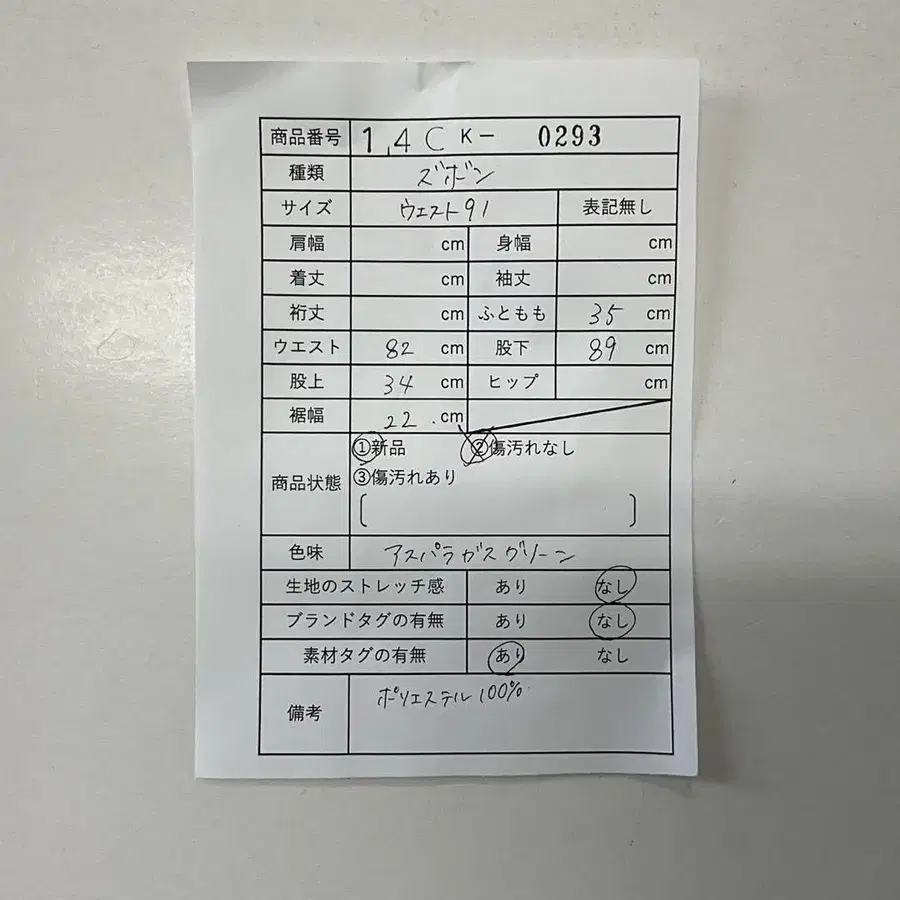 商品番号 1,4C K- 0293
種類 ズボン
サイズ ウエスト91 表記無し
肩幅 cm 身幅 cm
着丈 cm 袖丈 cm
裄丈 cm ふともも 35 cm
ウエスト 82 cm 股下 89 cm
股上 34 cm ヒップ cm
裾幅 22 .cm
商品状態 ①新品 ②傷汚れなし
③傷汚れあり
[ ]
色味 アスパラガスグリーン
生地のストレッチ感 あり なし
ブランドタグの有無 あり なし
素材タグの有無 あり なし
備考 ポリエステル100%